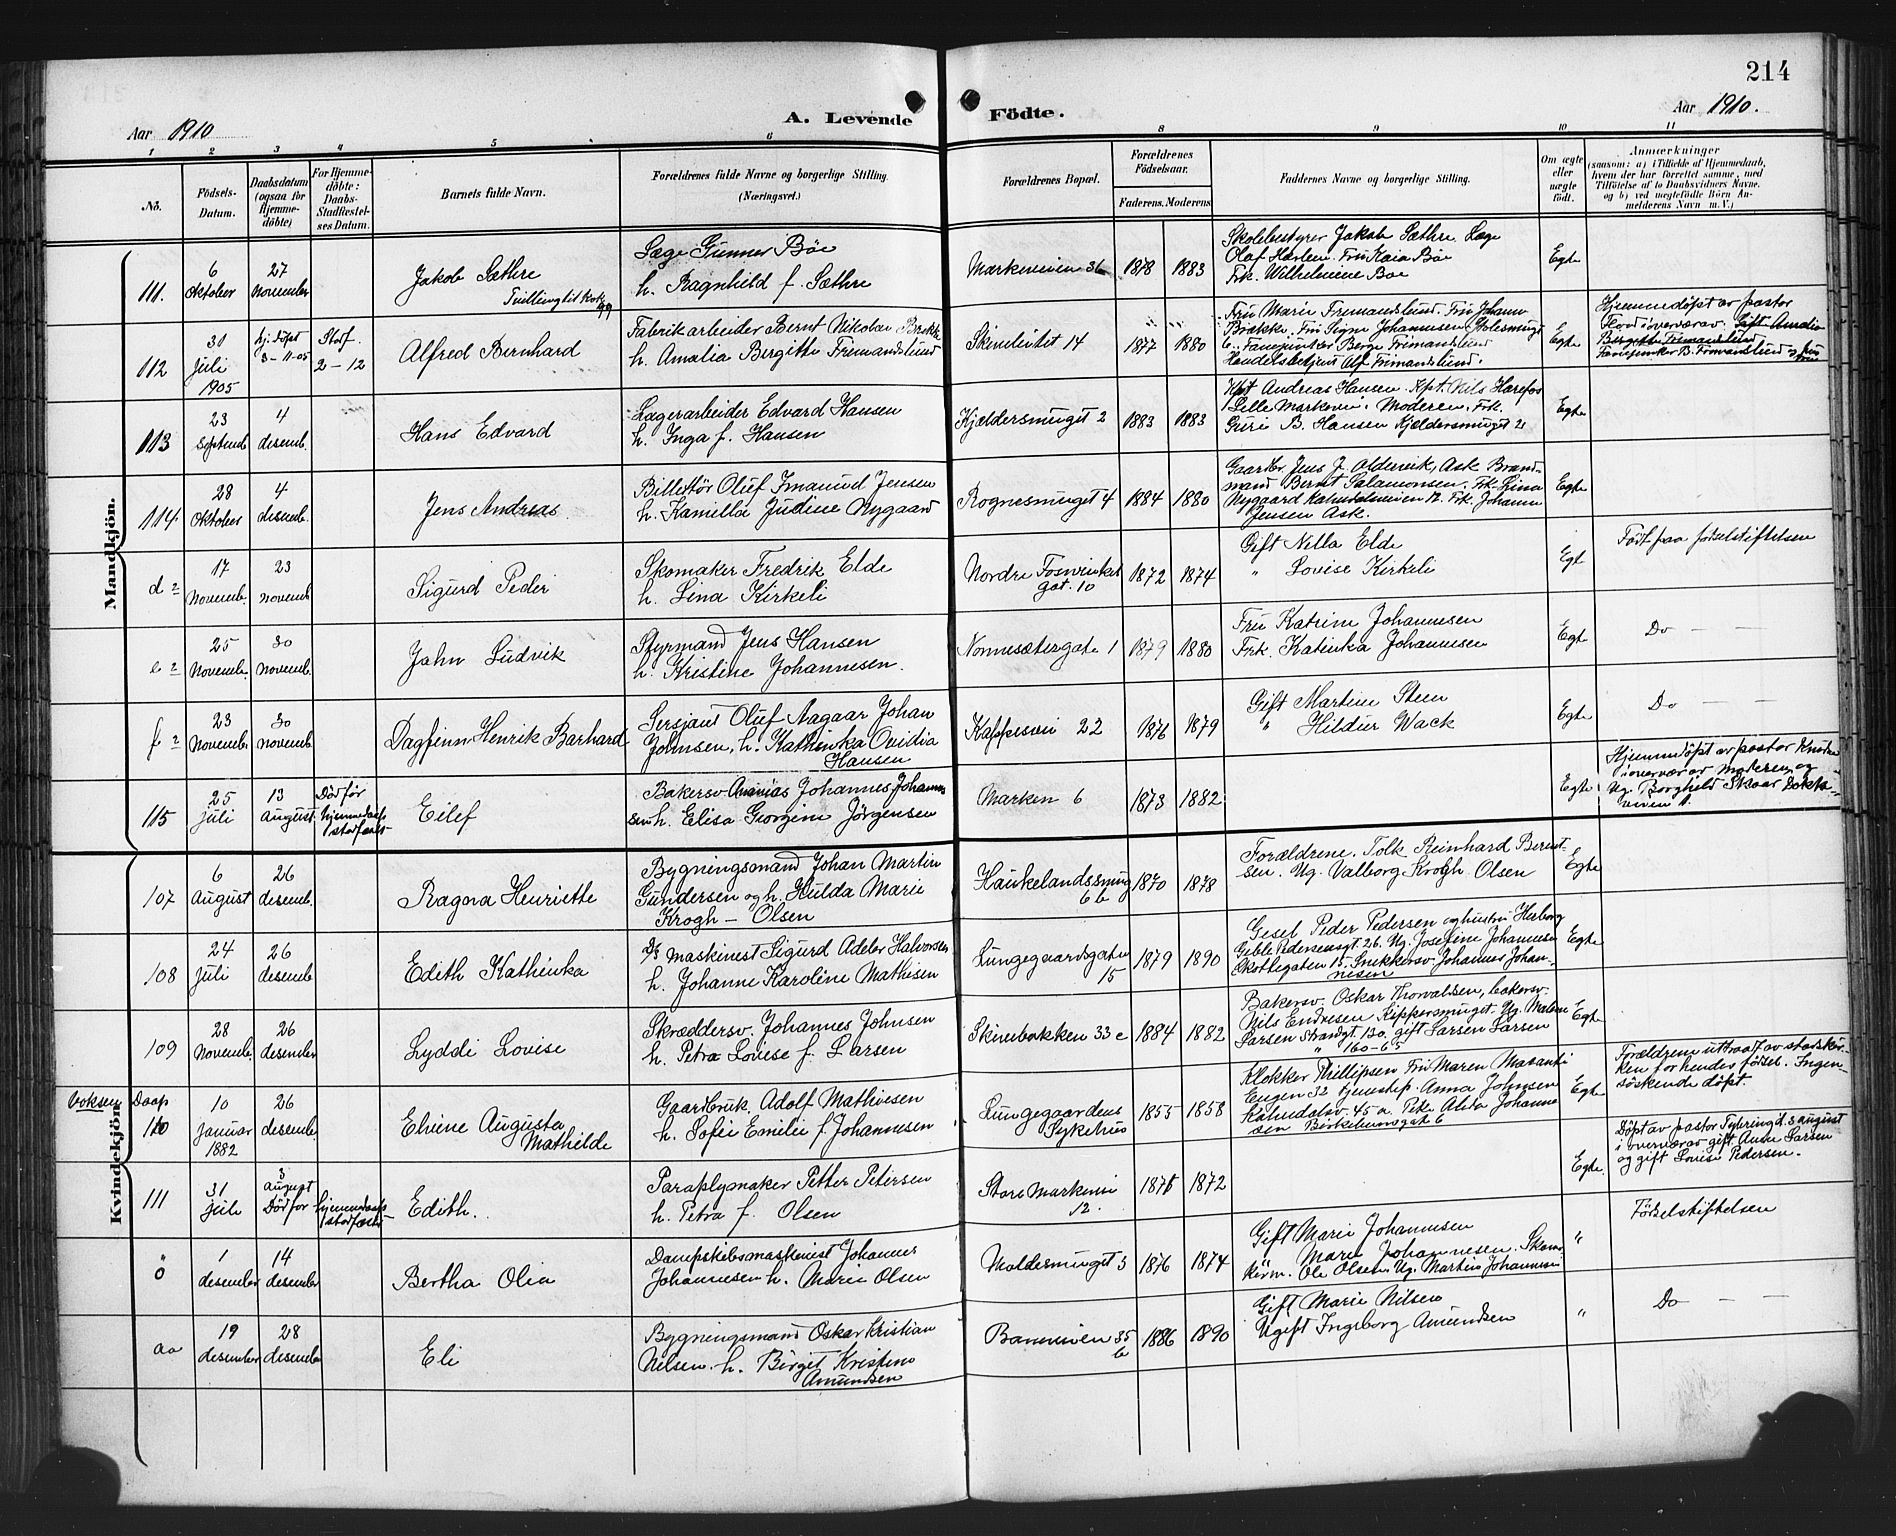 214
Aar 1910
A. Levende Födte.
Aar 1910.
1 2 3 4 5 6 8 9 10 11
No.
Födsels-Datum.
Daabsdatum (ogsaa for Hjemme-döbte)
For Hjemme-döbte: Daabs-Stadfæstel-ses Datum.
Barnets fulde Navn.
Forældrenes fulde Navne og borgerlige Stilling.
(Næringsvei.)
Forældrenes Bopæl.
Forældrenes Födselsaar.
Faderens. Moderens
Faddernes Navne og borgerlige Stilling.
Om ægte eller uægte födt.
Anmærkninger
(saasom: a) i Tilfælde af Hjemmedaab, hvem der har forrettet samme, med Tilföielse af to Daabsvidners Navne. og b) ved uægtefödte Börn An-melderens Navn m. V.)
Mandkjön.
111. 6 Oktober 27 November
Jakob Sæthre
Tvilling til
Læge Gunner Böe
h. Ragnhild f. Sæthre
Markeveien 36 1878 1883
Skolebestyrer Jakob Sæthre. Læge
Olaf Harlem. Fru Kaia Böe
Frk. Wilhelmine Böe
Egte
112 31 Juli 1905 hj. döpt 3-11-05 Staf. 2-12
Alfred Bernhard
Fabrikarbeider Bernt Nikolai Brekke
h. Amalia Bergitte Fremandslund
Skindlvitet 14 1877 1880
Fru Marie Fremandslund. Fru Johann
Brække. Fru Signe Johannesen
Fanejunker Berge Frimandslund
Handelsbetjent Alf Frimandslund.
Egte
Hjemmedöpt av pastor
i overvær av Gift Amalia
Bergitte Frimandslund
Fanejunker B. Fromandslund
113 23 Septemb 4 desemb.
Hans Edvard
Lagerarbeider Edvard Hansen
h. Inga f. Hansen
Kjeldersmuget 2 1883 1883
Kpt. Andreas Hansen. Kpt. Nils Harefos
Lille Markevei. Moderen. Frk.
Guri B. Hansen Kjeldersmuget 2
Egte
114. 28 Oktober 4 desemb.
Jens Andreas
Billettör Oluf Imanuel Jensen
h. Kamilla Judine Nygaard
Rognesmuget 4 1884 1880
Gaardbr. Jens J. Aldervik, Ask Brand-
mand Bernt Salamonsen. Frk. Lina
Nygaard Kalvedalsveien 12. Frk. Johanne
Jensen Ask.
Egte
d 2 17 Novemb. 23 novemb
Sigurd Peder
Skomaker Fredrik Elde
h. Lina Kirkeli
Nordre
gat. 10 1872 1874
Gift Nella Elde
" Lovise Kirkeli
Egt
Födt paa födselstiftelsen
e 2 25 Novemb. 30 Novemb.
Jahn Ludvik
Styrmand Jens Hansen
h. Kristine Johannesen.
Nonnesætergate 1 1879 1880
Fru Katrine Johannesen
Frk. Katinka Johannesen
Egte
Do — —
f 2 23 Novemb. 30 novemb.
Dagfinn Henrik Barhard
Sersjant Oluf Aagaar Johan
Johnsen, h. Kathinka Ovidia
Hansen
Kappesvei 22 1876 1879
Gift Martine Steen
" Hildur Wack
Egte
Do — —
115 25 juli 13 August
Död för hjemmedaap stadfæst
Eilef
Bakersv. Ananias Johannes Johannes
sen h. Elisa Georgine Jörgensen
Marken 6 1873 1882
Egte
Hjemmedöpt av pastor
i overvær av moderen og
Ug. Borghild Skaar
Kvindekjön
107 6 August 26 desemb.
Ragna Henriette
Bygningsmand Johan Martin
Gundersen og h. Hulda Marie
Krogh - Olsen
Haukelandssmug
6 b 1870 1878
Forældrene. Tolk Reinhard Bernt-
sen. Ug. Valborg Krogh Olsen
Egte
108 24 Juli 26 desemb
Edith Kathinka
D/s maskinest Sigurd Adeler Halvorsen
h. Johanne Karoline Mathisen
Lungegaardsgaten
15 1879 1890
Gesel Peder Pedersen og hustru Herborg
Geble Pedersensgt. 26. Ug. Josefine Johannesen
Skottegaten 15. Snekkersv. Johannes Johan-
nesen
Egte
109 28 Novemb. 26 desember
Lyddi Lovise
Skræddersv. Johannes Johnsen
h. Petra Lovise f. Larsen
Skivebakken 33 c 1884 1882
Bakersv. Oskar Thorvaldsen, bakersv.
Nils Endresen Kippersmuget. Ug. Malene
Larsen Strandgt. 130. gift Larsen Larsen
" 160-65
Egte
Voksen Daap
110 10 Januar 1882 26 desemb.
Elvine Augusta
Mathilde
Gaardbruk. Adolf Mathiesen
h. Sofie Emilie f. Johannesen
Lungegaardens
Sykehus 1855 1858
Klokker Phillipsen Fru Maren
Engen 32 tjenestep. Anna Johnsen
Kalvedalsv. 45 a. Pike Alida Johanne
sen Birkelundsgat 6
Egte
Forældrene uttraadt av statskir-
ken for hendes födsel. Ingen
söskende döpt.
111 31 Juli 3 august
Död for hjemmedaaps stadfæst
Edith.
Paraplymaker Petter Petersen
h. Petra f. Olsen
Store Markevei
12. 1875 1872
Egte.
Döpt av pastor Tybring d. 3 august
i overvær av gift Anne Larsen
og gift Lovise Pedersen.
ö 1 desember 14 desember
Bertha Olia
Dampskibsmaskinist Johannes
Johannesen h. Marie Olsen
Moldesmuget 3 1876 1874
Gift Marie Johannesen
" Marie Johannesen.
Ole Olsen. Ug. Martin Johannesen
"
Födselstiftelsen
aa 19 desember 28 desember
Eli
Bygningsmand Oskar Kristian
Nilsen. h. Birgit Kristine
Amundsen
Baneveien 35
b 1886 1890
Gift Marie Nilsen
Ugift Ingeborg Amundsen
"
Do — —